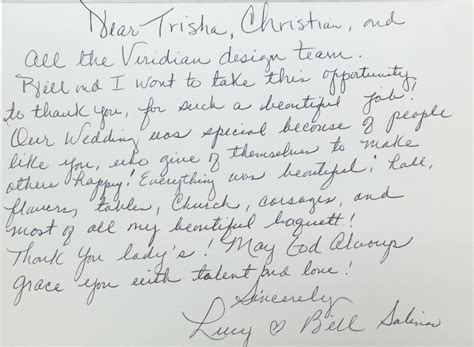 Dear Trisha, Christian, and
all the Viridian design team.
Bill and I want to take this opportunity
to thank you, for such a beautiful job!
Our Wedding was special because of people
like you, who give of themselves to make
others happy! Everything was beautiful; hall,
flowers, tables, Church, corsages, and
most of all my beautiful boquett!
Thank You lady's! May God Always
grace you with talent and love!
Sincerely
Lucy ♡ Bill Salinas